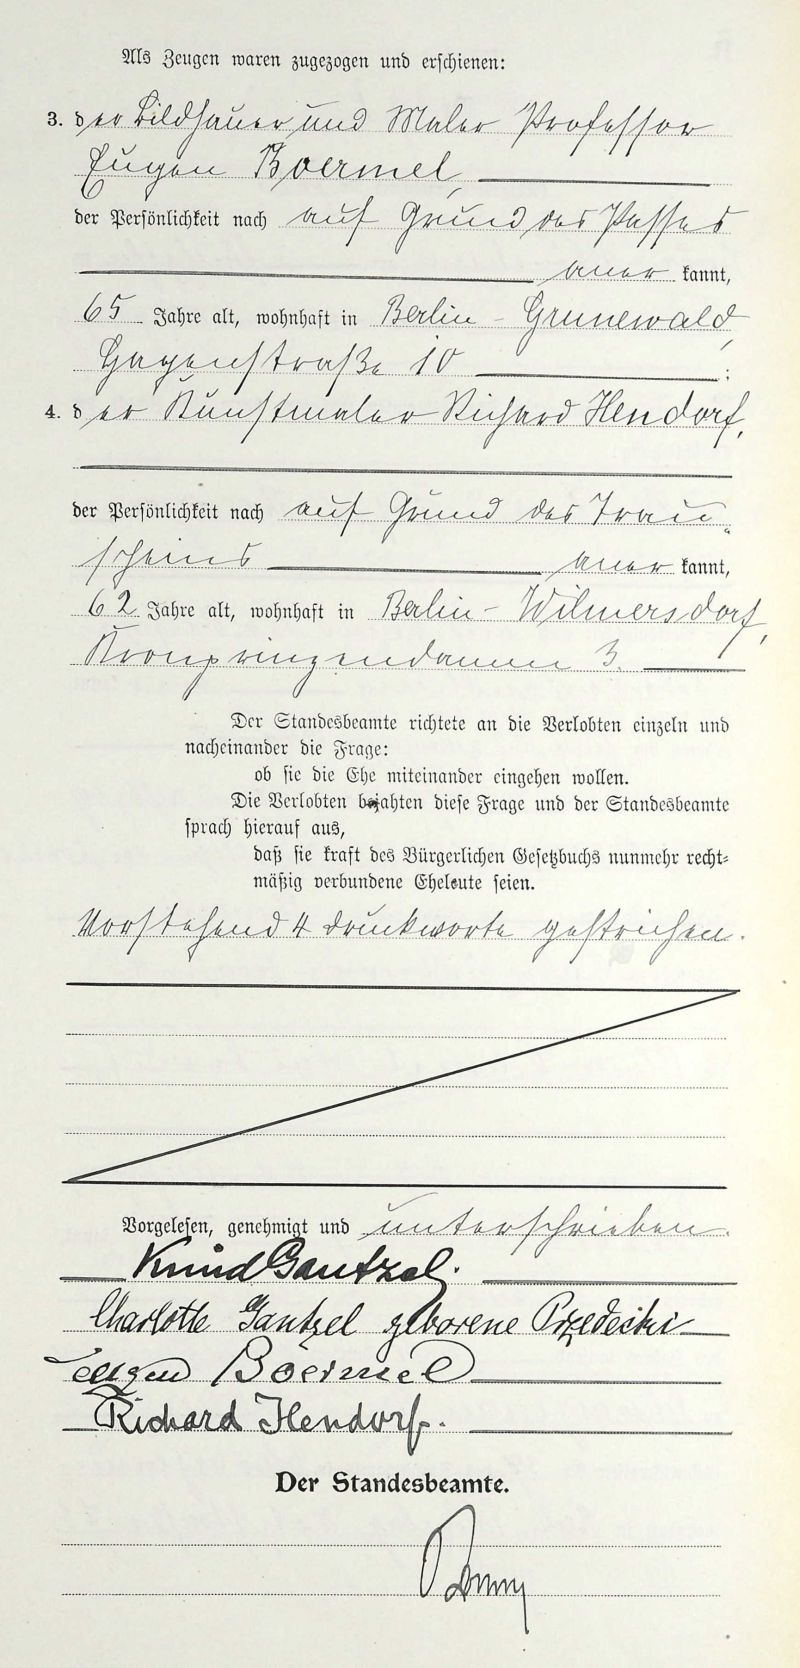 Als Zeugen waren zugezogen und erschienen:
3. der Bildhauer und Maler Professor
Eugen Boermel,
der Persönlichkeit nach auf Grund des Passes
aner kannt,
65 Jahre alt, wohnhaft in Berlin-Grunewald,
Gagenstraße 10;
4. der Kunstmaler Richard Hendorf,
der Persönlichkeit nach auf Grund des Trau-
scheins aner kannt,
62 Jahre alt, wohnhaft in Berlin-Wilmersdorf,
Kronprinzendamm 3.
Der Standesbeamte richtete an die Verlobten einzeln und
nacheinander die Frage:
ob sie die Ehe miteinander eingehen wollen.
Die Verlobten bejahten diese Frage und der Standesbeamte
sprach hierauf aus,
daß sie kraft des Bürgerlichen Gesetzbuchs nunmehr recht-
mäßig verbundene Eheleute seien.
Vorstehend 4 Druckworte gestrichen.
Vorgelesen, genehmigt und unterschrieben.
Knud Gantzel.
Charlotte Gantzel geborene Przedecki
Eugen Boermel
Richard Hendorf.
Der Standesbeamte.